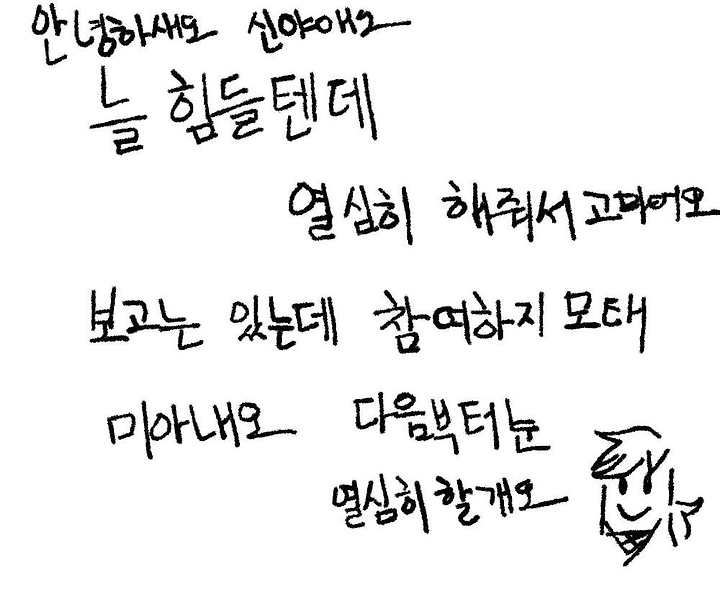 안녕하새오 신야애오
늘 힘들텐데
열심히 해줘서 고마어오
보고는 있는데 참여하지 모태
미아내오 다음부터눈
열심히 할개오